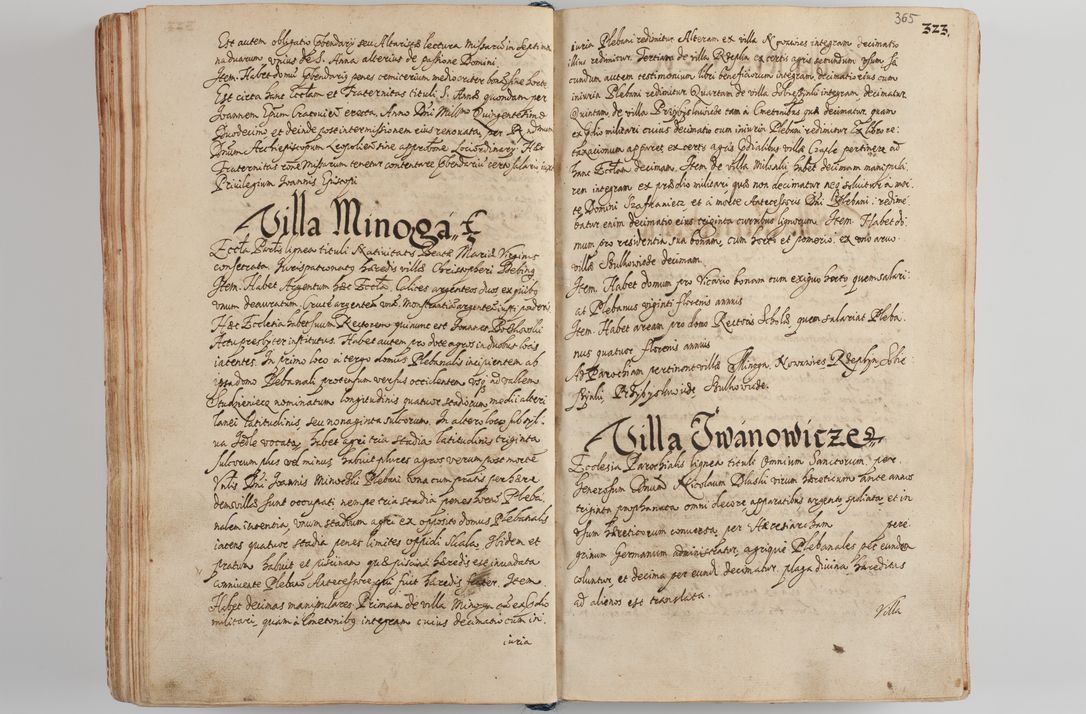 Est autem obligatio Praebendarij seu Altaristae lectura Missarum in Septima
na duarum unius de S. Anna alterius de passione Domini.
Item Habet domum Praebendarij penes cemiterium mediocriter bonam sine horto
Est circa hanc Ecclam et Fraternitas tituli S. Annae quondam per
Joannem Epum Cracovien erecta. Anno Dni Millmo Quingentesimo
Duodecimo et deinde post intermissionem eius renovata, per Rndmum
Dnum Archiepiscopum Leopoliensem approbatione Loci ordinarij. Haec
Fraternitas rone Missarum tenetur contentare Praebendariu certo salario iuxta
Privilegium Joannis Episcopi
Villa Minogá
Eccla Partis lignea tituli Nativitatis Beatae Mariae Virginis
consecrata Iurispatronatus haeredis villae
Item. Habet Argentum haec Eccla. Calices argenteos duos ex quibus
unum deauratum. Crucē argenteā unā. Monstrantiā argenteā iusti ponderis
Haec Ecclesia habet suum Rectorem qui nunc est Joannes
Actu presbyter institutus. Habet autem pro dote agros in duobus locis
iacentes. In primo loco à tergo domus Plebanalis incipientem ab
ipsa domo Plebanali protensum versus occidentem usq ad vallem
Studzieniec nominatum longitudinis quatuor stadiorum, medii alteri
lanei latitudinis, seu nonaginta sulcorum. In altero loco sub syl
va Jedle vocata, habet agri tria stadia latitudinis triginta
sulcorum plus vel minus habuit plures agros verum post mortē
Vnlis Dni Joannis Minoski Plebani bona cum pratis per hære
dem villae sunt occupati nempe tria stadia penes hortū Pleba
nalem iacentia, unum stadium agri ex opposito domus Plebanalis
iacens quatuor stadia penes limites oppidi Skala. Ibidem et
pratum habuit et piscinam quae piscina haeredis est inundata
annivente Plebano Antecessore qui fuit haeredis frater. Item
Habet decimas manipulares. Primam de villa Minoga quā ex praedio
militari, quam à Cmetonibq integram cuius decimatio cum in:
iuria
365
323.
iuria Plebani redimitur. Alteram ex villa Novawies integram decimatio
illius redimitur. Tertiam de villa Rzeplin ex certis agris secundum usum sē
cundum autem testimonium libri beneficiorum integram, decimatio eius cum
iniuria Plebani redimitur Quartam de villa Sobieszinki integram decimatur
Quintam, de villa Przybysławicze tam à Cmetonibus quae decimatur, quam
ex praedio militari cuius decimatio cum iniuria Plebani redimitur Ex libro re:
taxacionum apparet ex certis agris praedialibus villae Czaple pertinere ad
hanc Ecclam decimam. Item de villa Milonki habet decimam manipula:
rem integram ex praedio militari, quae non decimatur neq solvitur à mor:
te Domini Szafraniecz et à morte Antecessoris Dni Plebani: redime
batur enim decimatio eius triginta curribus lignorum. Item Habet do:
mum pro residentia sua bonam, cum horto et pomerio. ex uno arvo
villae Stulkowicze decimam.
Item. Habet domum pro Vicario bonam cum exiguo horto quem salari:
at Plebanus viginti florenis annuis
Item. Habet aream pro domo Rectoris Scholae, quem salariat Pleba:
nus quatuor florenis annuis
Ad Parochiam pertinent villae Minoga, Novawies Rzeplin, Sobie
szinki Przybysławicze Stulkowicze.
Villa Iwánowicze
Ecclesia Parochialis lignea tituli Omnium Sanctorum, per
Generosum Dnum Nicolaum Pluski virum haereticum, ante annos
triginta prophanata omni decore, apparatibus argento spoliata et in
usum haereticorum conversa, per Haeresiarcham pere
grinum Germanum administratur, agriquae Plebanales per eundem
coluntur, et decima per eund decimatur. plaga divina haereditas
ad alienos est translata.
Villa